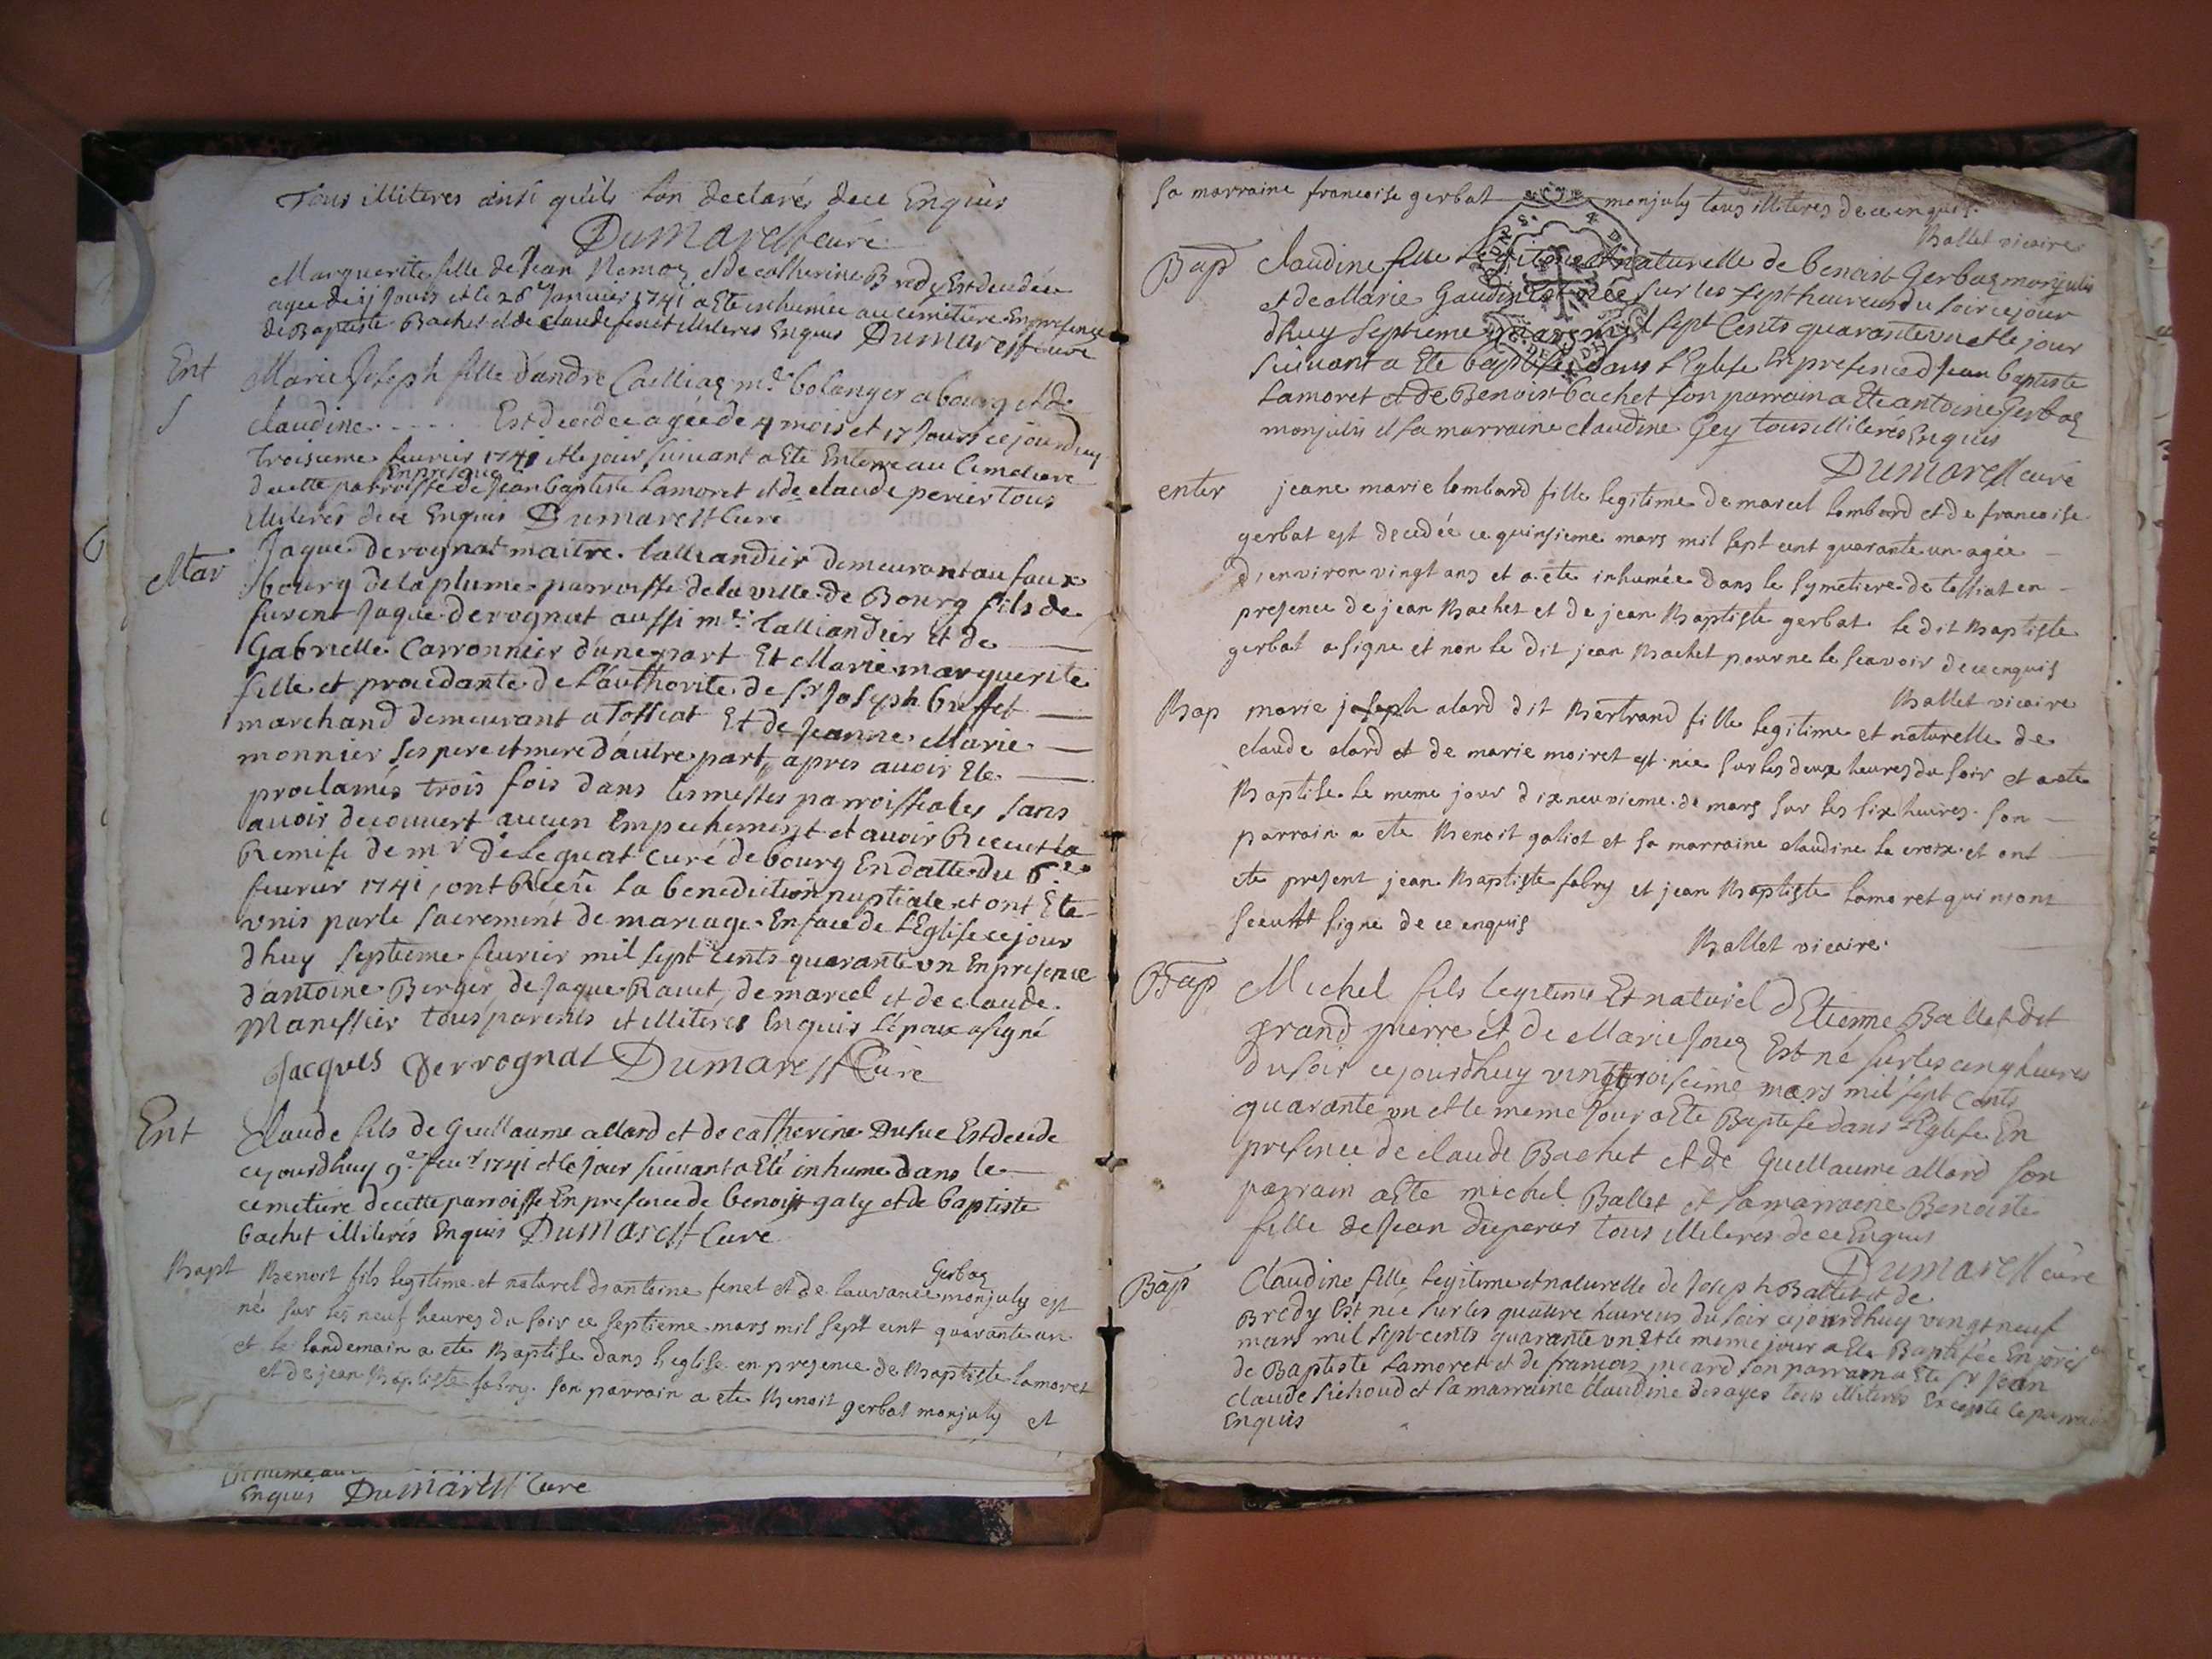 Tous illiteres ainsi quils lon declarés dece Enquis
Dumarest curé
Marguerite fille de Jean Remon et de catherine Bredy Est decedée
agee de jours et le 26e Janvier 1741 a Ete inhumée au cimetiere En presence
de Baptiste Bachet et de claude fenet illiteres Enquis Dumarest curé
Ent Marie Joseph fille d'andre Cailliaz md bolanger a bourg et de
claudine ..... Est decedée agée de 4 mois et 17 Jours ce jourdhuy
troisieme fevrier 1741 et le jour suivant a Ete Enterre au Cimetiere
En presence
decette parroisse de Jean baptiste Lamoret et de claude perier tous
illiteres dece Enquis Dumarest Curé
Mar Jaque derognat maitre talliandier demeurant au faux
bourg de la plume parroisse de la ville de Bourg fils de
furent Jaque derognat aussi me talliandier et de
Gabrielle Carronnier d'une part Et Marie marguerite
fille et procedante de L'authorite de Sr Joseph Griffet
marchand demeurant a Tossiat Et de Jeanne Marie
monnier ses pere et mere d'autre part, apres avoir Ete
proclamés trois fois dans les messes parroissiales sans
avoir decouvert aucun Empechement et avoir Receut la
Remise de mr de Lequat curé de bourg En datte du 6e
fevrier 1741, ont Receu la benediction nuptiale et ont Ete
unis par le sacrement de mariage En face de L'Eglise ce jour
dhuy septieme fevrier mil sept cents quarante un En presence
d'antoine Berger, de Jaque Ravet, de marcel et de claude
Manessier tous parents et illiteres Enquis L'époux a signé
Jacques Derrognat Dumarest Curé
Ent Claude fils de Guillaume allard et de catherine Dufuc Est decede
ce jourdhuy 9e fevr 1741 et le Jour suivant a Eté inhume dans le
cemetiere decette parroisse En presence de benoist galy et de baptiste
bachet illiterés Enquis Dumarest Curé
Gerbaz
Bapt Benoit fils legitime et naturel d'antoine fenet et de laurance monjuly est
né sur les neuf heures du soir ce septieme mars mil sept cent quarante un
et le landemain a ete Baptise dans leglise en presence de Baptiste lamoret
et de jean Baptiste fabry son parrain a ete Benoit gerbat monjuly et
Enquis Dumarest Curé
sa marraine francoise gerbat monjuly tous illiteres de ce enquis
Ballet vicaire
Bap Claudine fille legitime et naturelle de benoist Gerbaz monjulis
et de Marie Gaudin Est née sur les sept heures du soir ce jour
dhuy septieme mars mil sept Cents quarante un et le jour
suivant a Ete baptisée dans L'Eglise En presence d Jean baptiste
Lamoret et de Benoist bachet son parrain a Ete antoine Gerbaz
monjulis et sa marraine claudine Gey tous illiteres Enquis
Dumarest curé
enter jeane marie lombard fille legitime de marcel lombard et de francoise
gerbat est decedée ce quinsieme mars mil sept cent quarante un agée
d'environ vingt ans et a ete inhumée dans le symetiere de tossiat en
presence de jean Bachet et de jean Baptiste gerbat le dit Baptiste
gerbat a signe et non le dit jean Bachet pour ne le scavoir de ce enquis
Ballet vicaire
Bap marie joseph alard dit Bertrand fille legitime et naturelle de
claude alard et de marie moiret est née sur les deux heures du soir et a ete
Baptise le meme jour dixneuvieme de mars sur les six heures son
parrain a ete Benoit galiot et sa marraine claudine la croix et ont
ete present jean Baptiste fabry et jean Baptiste lamoret qui n'ont
sceut signe de ce enquis
Ballet vicaire
Bap Michel fils legitime Et naturel d'Etienne Ballet dit
grand pierre et de Marie Est né sur les cinq heures
du soir ce jourdhuy vingttroisieme mars mil sept Cents
quarante un et le meme Jour a Ete Baptise dans L'Eglise En
presence de claude Bachet et de Guillaume allard son
parrain a Ete michel Ballet et sa marraine Benoiste
fille de Jean duperas tous illiteres de ce Enquis
Dumarest curé
Bap Claudine fille legitime et naturelle de Joseph Ballet et de
Bredy Est née sur les quattre heures du soir ce jourdhuy vingt neuf
mars mil sept cents quarante un et le meme jour a Ete Baptisée En
de Baptiste Lamoret et de francois son parrain a Ete sr Jean
claude et sa marraine claudine tous illiteres Excepte le parrain
Enquis